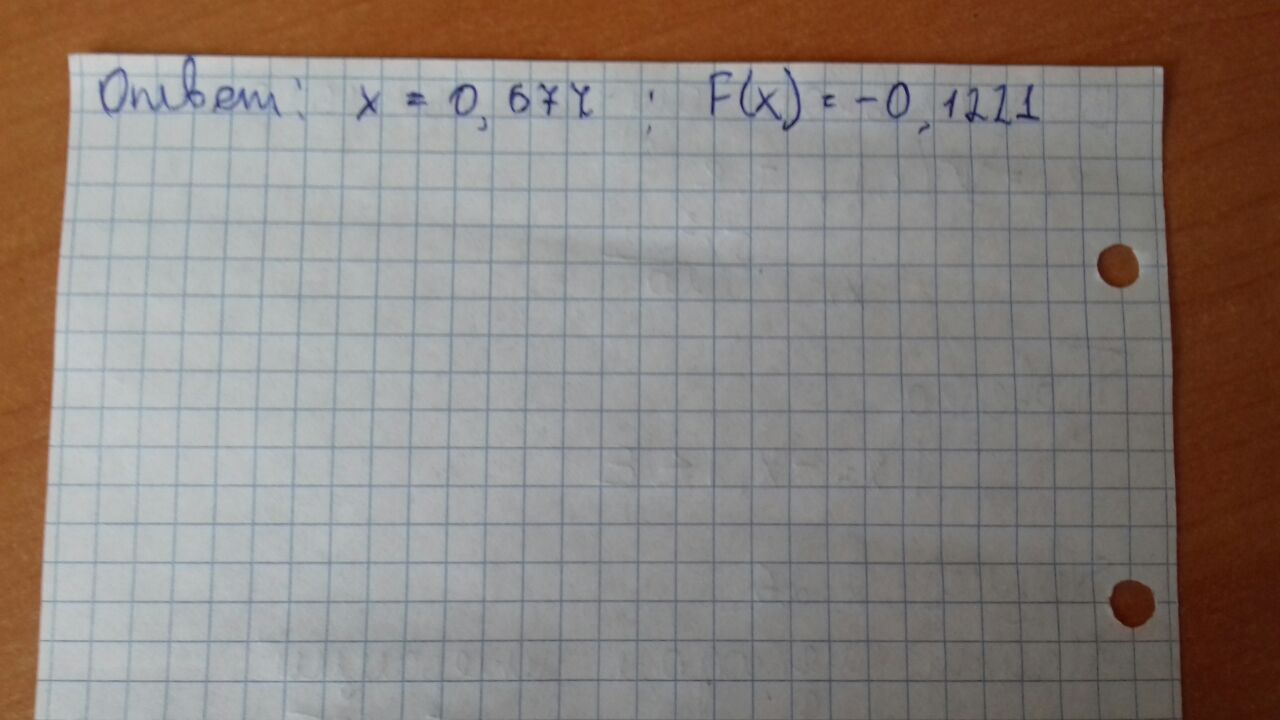 Ответ: x = 0,672 ; F(x) = -0,1221